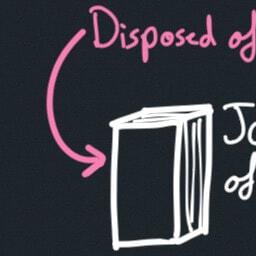 Disposed of
of